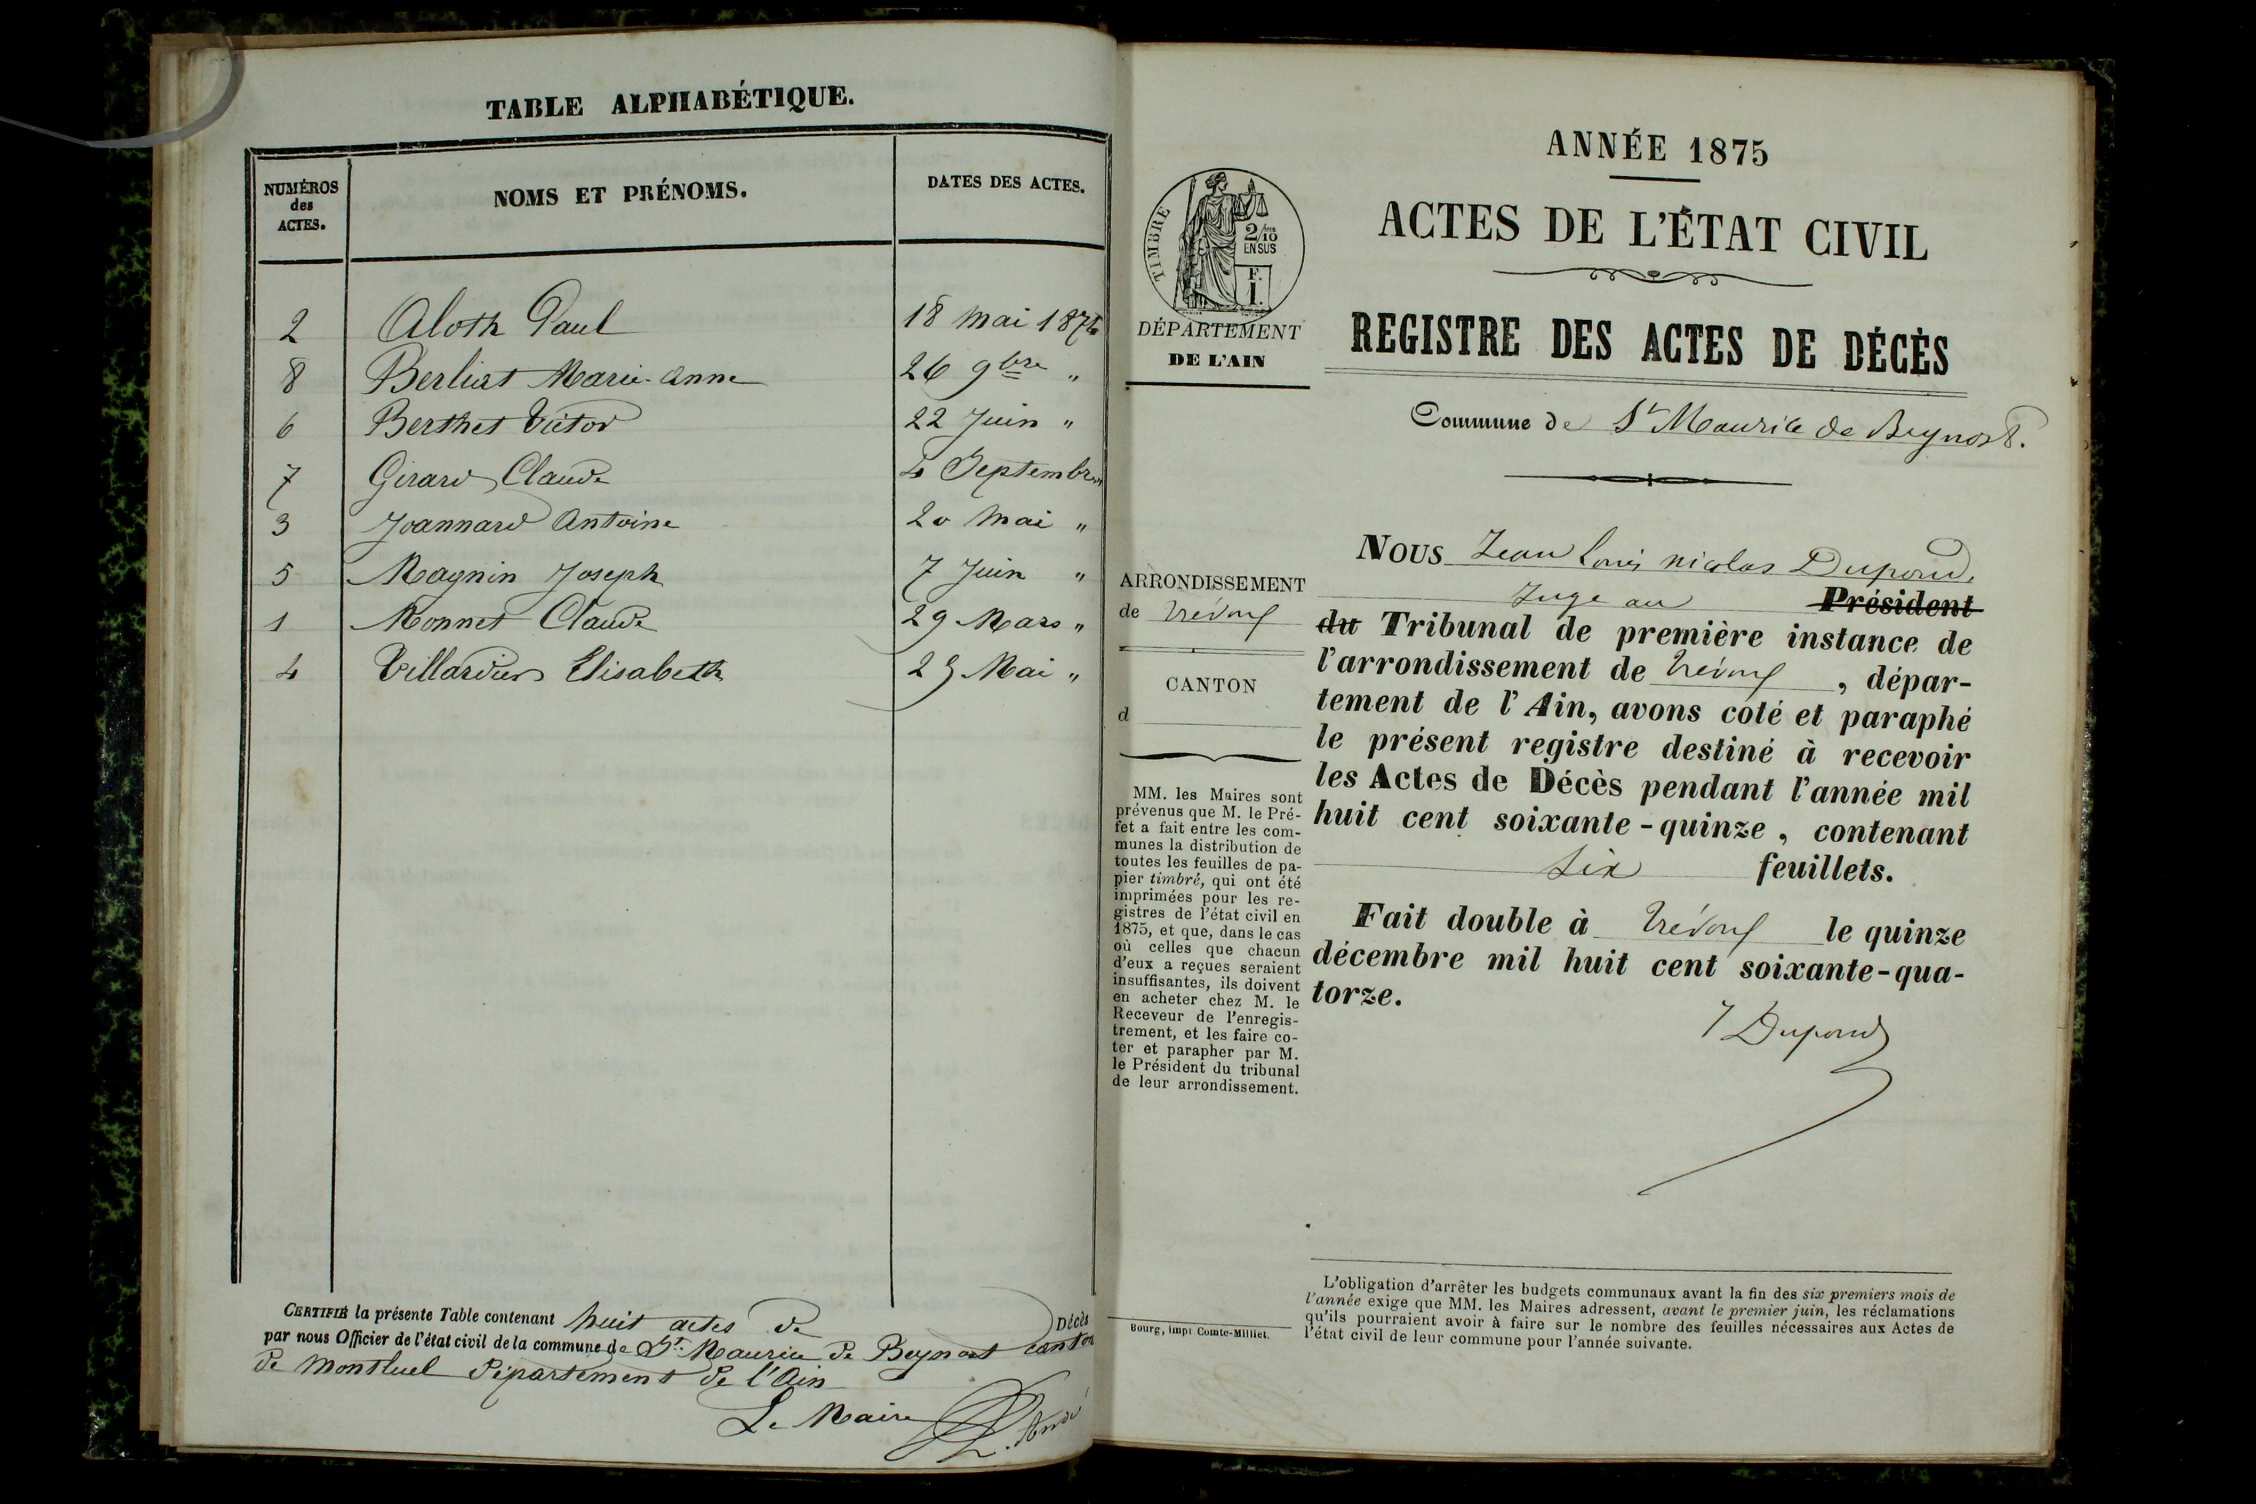 TABLE ALPHABÉTIQUE.
NUMÉROS des ACTES. NOMS ET PRÉNOMS. DATES DES ACTES.
2 Aloth Paul 18 Mai 1874
8 Berliet Marie-Anne 26 9bre "
6 Berthet Victor 22 Juin "
7 Girard Claude 4 Septembre "
3 Joannard Antoine 20 Mai "
5 Magnin Joseph 7 Juin "
1 Monnet Claude 29 Mars "
4 Villardier Elisabeth 25 Mai "
CERTIFIÉ la présente Table contenant huit actes de Décès
par nous Officier de l'état civil de la commune de St. Maurice de Beynost canton
de Montluel département de l'Ain
Le Maire
ANNÉE 1875
ACTES DE L'ÉTAT CIVIL
REGISTRE DES ACTES DE DÉCÈS
Commune de St Maurice de Beynost.
TIMBRE
2/10
EN SUS
F.
I.
DÉPARTEMENT
DE L'AIN
ARRONDISSEMENT
de Trévoux
CANTON
d
MM. les Maires sont
prévenus que M. le Pré-
fet a fait entre les com-
munes la distribution de
toutes les feuilles de pa-
pier timbré, qui ont été
imprimées pour les re-
gistres de l'état civil en
1875, et que, dans le cas
où celles que chacun
d'eux a reçues seraient
insuffisantes, ils doivent
en acheter chez M. le
Receveur de l'enregis-
trement, et les faire co-
ter et parapher par M.
le Président du tribunal
de leur arrondissement.
Bourg, impr Comte-Milliet.
NOUS Jean Louis Nicolas Dupond,
Juge au Président
du Tribunal de première instance de
l'arrondissement de Trévoux, dépar-
tement de l'Ain, avons coté et paraphé
le présent registre destiné à recevoir
les Actes de Décès pendant l'année mil
huit cent soixante-quinze, contenant
six feuillets.
Fait double à Trévoux le quinze
décembre mil huit cent soixante-qua-
torze.
J Dupond
L'obligation d'arrêter les budgets communaux avant la fin des six premiers mois de
l'année exige que MM. les Maires adressent, avant le premier juin, les réclamations
qu'ils pourraient avoir à faire sur le nombre des feuilles nécessaires aux Actes de
l'état civil de leur commune pour l'année suivante.